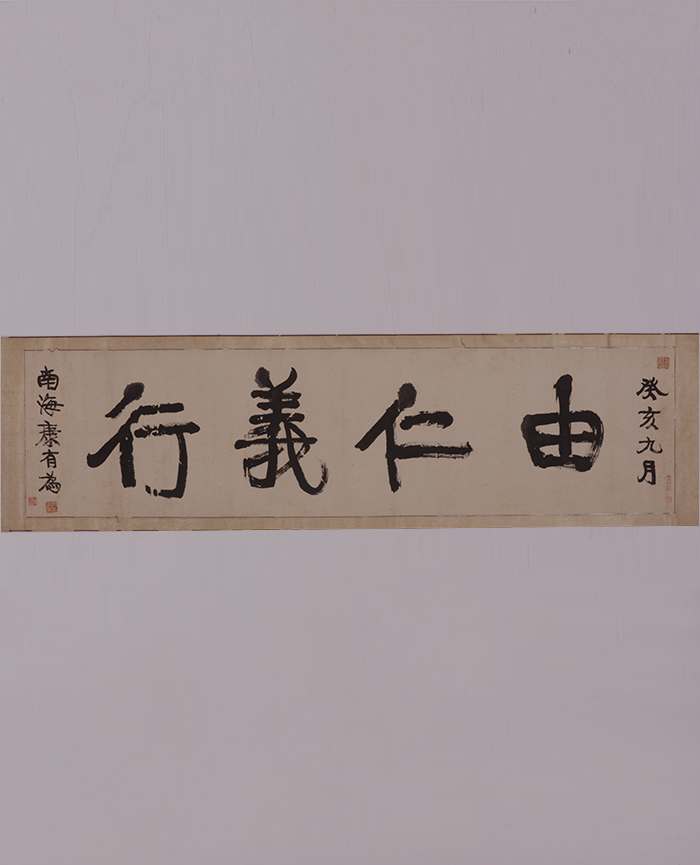 癸亥九月
由仁義行
南海康有為